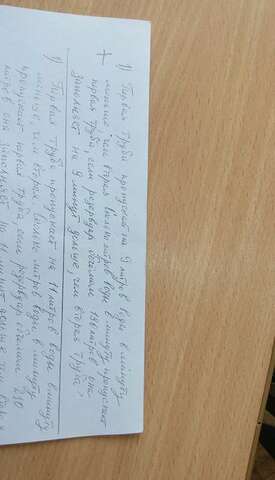 1) Первая труба пропускает на 9 литров воды в минуту
меньше, чем вторая. Сколько литров воды в минуту пропускает
первая труба, если резервуар объемом 136 литров она
заполняет на 9 минут дольше, чем вторая труба?
1) Первая труба пропускает на 11 литров воды в минуту
меньше, чем вторая. Сколько литров воды в минуту
пропускает первая труба, если резервуар объемом 230
литров она заполняет на 11 минут дольше, чем